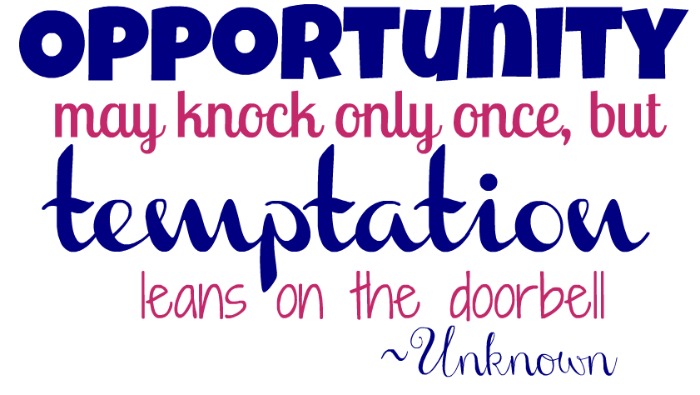 OPPORTUNITY
may knock only once, but
temptation
leans on the doorbell
~Unknown